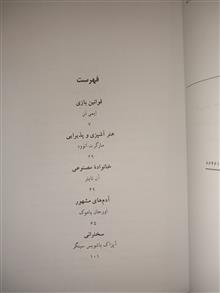 فهرست
قوانین بازی
ایمی تن
۷
هنر آشپزی و پذیرایی
مارگرت اتوود
۲۹
خانوادهٔ مصنوعی
آن تایلر
۴۹
آدم‌های مشهور
اورهان پاموک
۶۵
سخنرانی
آیزاک باشویس سینگر
۱۰۱